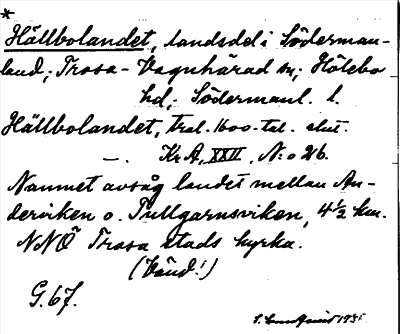 *
Hällbolandet, landsdel i Söderman-
land; Trosa-Vagnhärad sn; Hölebo
hd; Södermanl. l.
Hällbolandet, tral. 1600-tal. slut.
—. Kr A, XXII, N:o 26.
Namnet avsåg landet mellan An-
derviken o. Tullgarnsviken, 4 1/2 km.
NNÖ Trosa stads kyrka.
(Vänd!)
G. 67.